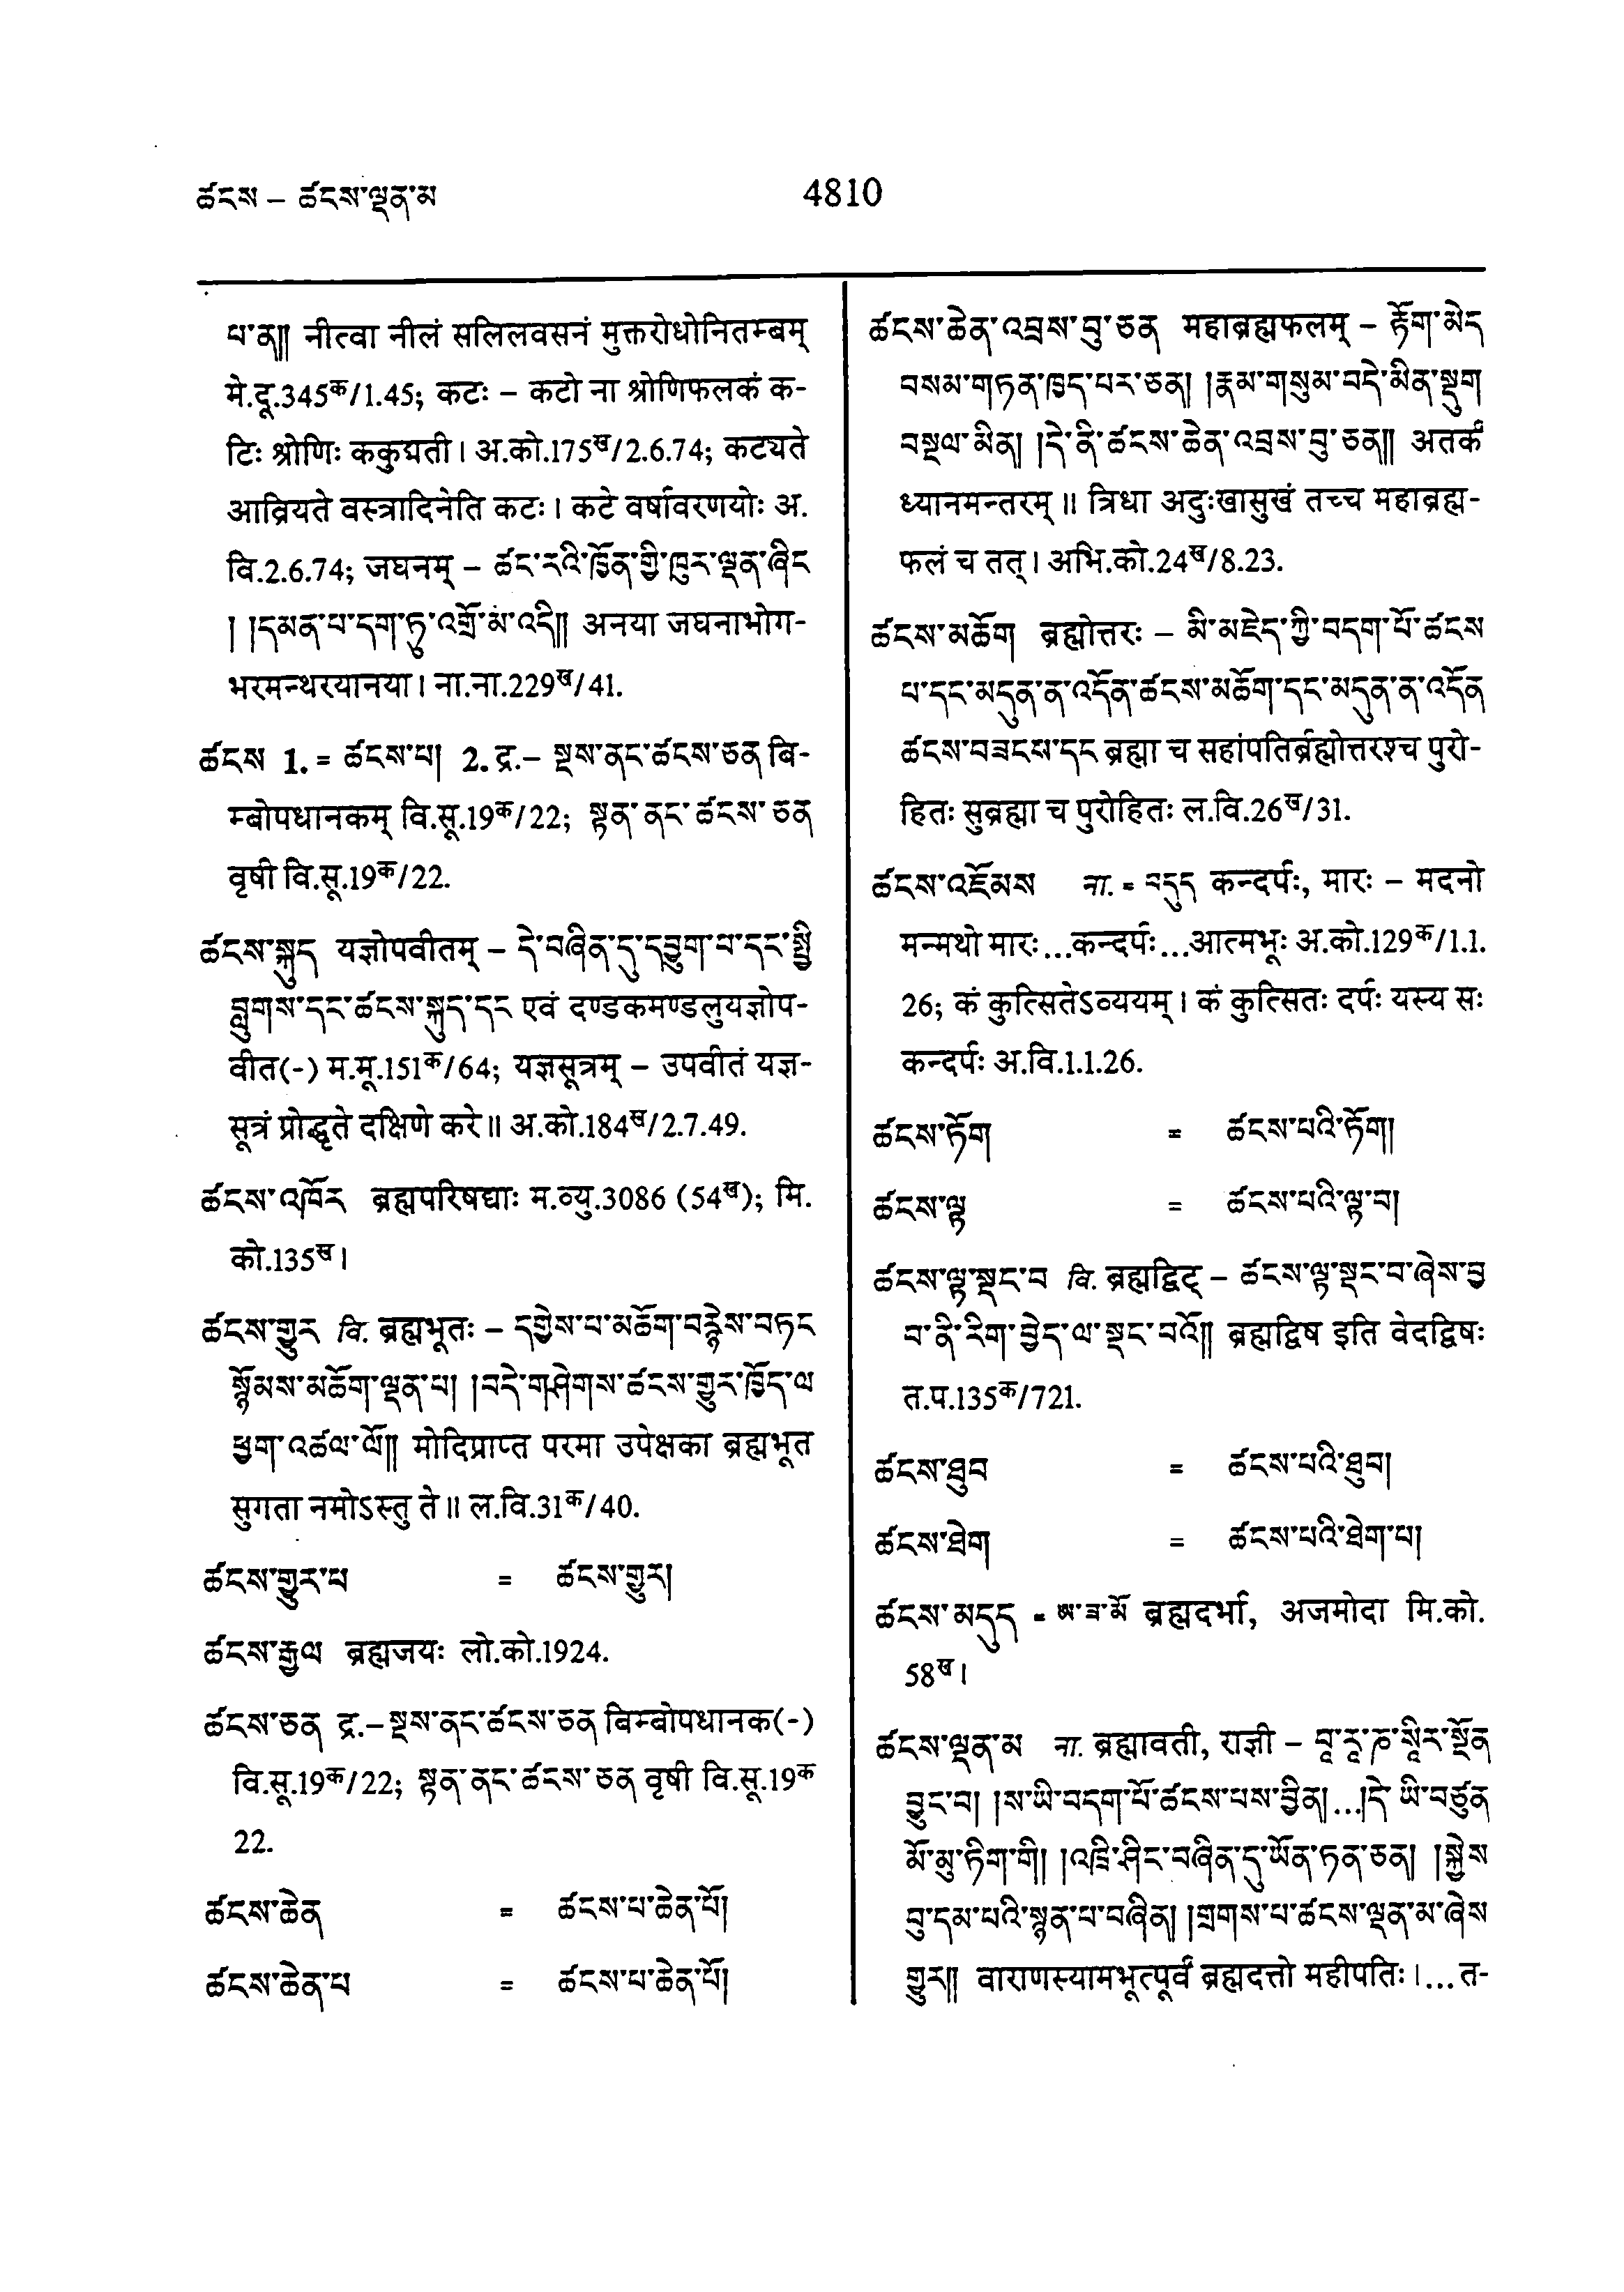 ཚངས – ཚངས་ལྡན་མ
4810
པ་ན།། नीत्वा नीलं सलिलवसनं मुक्तरोधोनितम्बम्
मे.दू.345क/1.45; कटः – कटो ना श्रोणिफलकं क-
टिः श्रोणिः ककुद्मती । अ.को.175ख/2.6.74; कट्यते
आव्रियते वस्त्रादिनेति कटः । कटे वर्षावरणयोः अ.
वि.2.6.74; जघनम् – ཚང་རའི་ཁྱོན་གྱི་ཁུར་ལྡན་ཞིང
། །དམན་པ་དག་ཏུ་འགྲོ་མ་འདི།། अनया जघनाभोग-
भरमन्थरयानया । ना.ना.229ख/41.
ཚངས 1. = ཚངས་པ། 2. द्र.– སྔས་ནང་ཚངས་ཅན बि-
म्बोपधानकम् वि.सू.19क/22; སྟན་ནང་ཚངས་ཅན
वृषी वि.सू.19क/22.
ཚངས་སྐུད यज्ञोपवीतम् – དེ་བཞིན་དུ་དབྱུག་པ་དང་སྤྱི
བླུགས་དང་ཚངས་སྐུད་དང एवं दण्डकमण्डलुयज्ञोप-
वीत(-) म.मू.151क/64; यज्ञसूत्रम् – उपवीतं यज्ञ-
सूत्रं प्रोद्धृते दक्षिणे करे ॥ अ.को.184ख/2.7.49.
ཚངས་འཁོར ब्रह्मपरिषद्याः म.व्यु.3086 (54ख); मि.
को.135ख ।
ཚངས་གྱུར वि. ब्रह्मभूतः – དགྱེས་པ་མཆོག་བརྙེས་བཏང
སྙོམས་མཆོག་ལྡན་པ། །བདེ་གཤེགས་ཚངས་གྱུར་ཁྱོད་ལ
ཕྱག་འཚལ་ལོ།། मोदिप्राप्त परमा उपेक्षका ब्रह्मभूत
सुगता नमोऽस्तु ते ॥ ल.वि.31क/40.
ཚངས་གྱུར་པ = ཚངས་གྱུར།
ཚངས་རྒྱལ ब्रह्मजयः लो.को.1924.
ཚངས་ཅན द्र.– སྔས་ནང་ཚངས་ཅན बिम्बोपधानक(-)
वि.सू.19क/22; སྟན་ནང་ཚངས་ཅན वृषी वि.सू.19क
22.
ཚངས་ཆེན = ཚངས་པ་ཆེན་པོ།
ཚངས་ཆེན་པ = ཚངས་པ་ཆེན་པོ།
ཚངས་ཆེན་འབྲས་བུ་ཅན महाब्रह्मफलम् – རྟོག་མེད
བསམ་གཏན་ཁྱད་པར་ཅན། །རྣམ་གསུམ་བདེ་མིན་སྡུག
བསྔལ་མིན། །དེ་ནི་ཚངས་ཆེན་འབྲས་བུ་ཅན།། अतर्कं
ध्यानमन्तरम् ॥ त्रिधा अदुःखासुखं तच्च महाब्रह्म-
फलं च तत् । अभि.को.24ख/8.23.
ཚངས་མཆོག ब्रह्मोत्तरः – མི་མཇེད་ཀྱི་བདག་པོ་ཚངས
པ་དང་མདུན་ན་འདོན་ཚངས་མཆོག་དང་མདུན་ན་འདོན
ཚངས་བཟངས་དང ब्रह्मा च सहांपतिर्ब्रह्मोत्तरश्च पुरो-
हितः सुब्रह्मा च पुरोहितः ल.वि.26ख/31.
ཚངས་འཇོམས ना. = བདུད कन्दर्पः, मारः – मदनो
मन्मथो मारः...कन्दर्पः...आत्मभूः अ.को.129क/1.1.
26; कं कुत्सितेऽव्ययम् । कं कुत्सितः दर्पः यस्य सः
कन्दर्पः अ.वि.1.1.26.
ཚངས་ཏོག = ཚངས་པའི་ཏོག།
ཚངས་ལྟ = ཚངས་པའི་ལྟ་བ།
ཚངས་ལྟ་སྡང་བ वि. ब्रह्मद्विट् – ཚངས་ལྟ་སྡང་བ་ཞེས་བྱ
བ་ནི་རིག་བྱེད་ལ་སྡང་བའོ།། ब्रह्मद्विष इति वेदद्विषः
त.प.135क/721.
ཚངས་ཐུབ = ཚངས་པའི་ཐུབ།
ཚངས་ཐེག = ཚངས་པའི་ཐེག་པ།
ཚངས་མདུད = ཨ་ཟ་མོ ब्रह्मदर्भा, अजमोदा मि.को.
58ख ।
ཚངས་ལྡན་མ ना. ब्रह्मावती, राज्ञी – བཱ་རཱ་ཎ་སཱིར་སྔོན
བྱུང་བ། །ས་ཡི་བདག་པོ་ཚངས་པས་བྱིན།...།དེ་ཡི་བཙུན
མོ་མུ་ཏིག་གི། །འཁྲི་ཤིང་བཞིན་དུ་ཡོན་ཏན་ཅན། །སྐྱེས
བུ་དམ་པའི་སྙན་པ་བཞིན། །གྲགས་པ་ཚངས་ལྡན་མ་ཞེས
གྱུར།། वाराणस्यामभूत्पूर्वं ब्रह्मदत्तो महीपतिः ।... त-